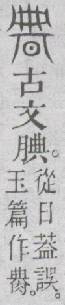 古文腆。
從日葢誤。
玉篇作